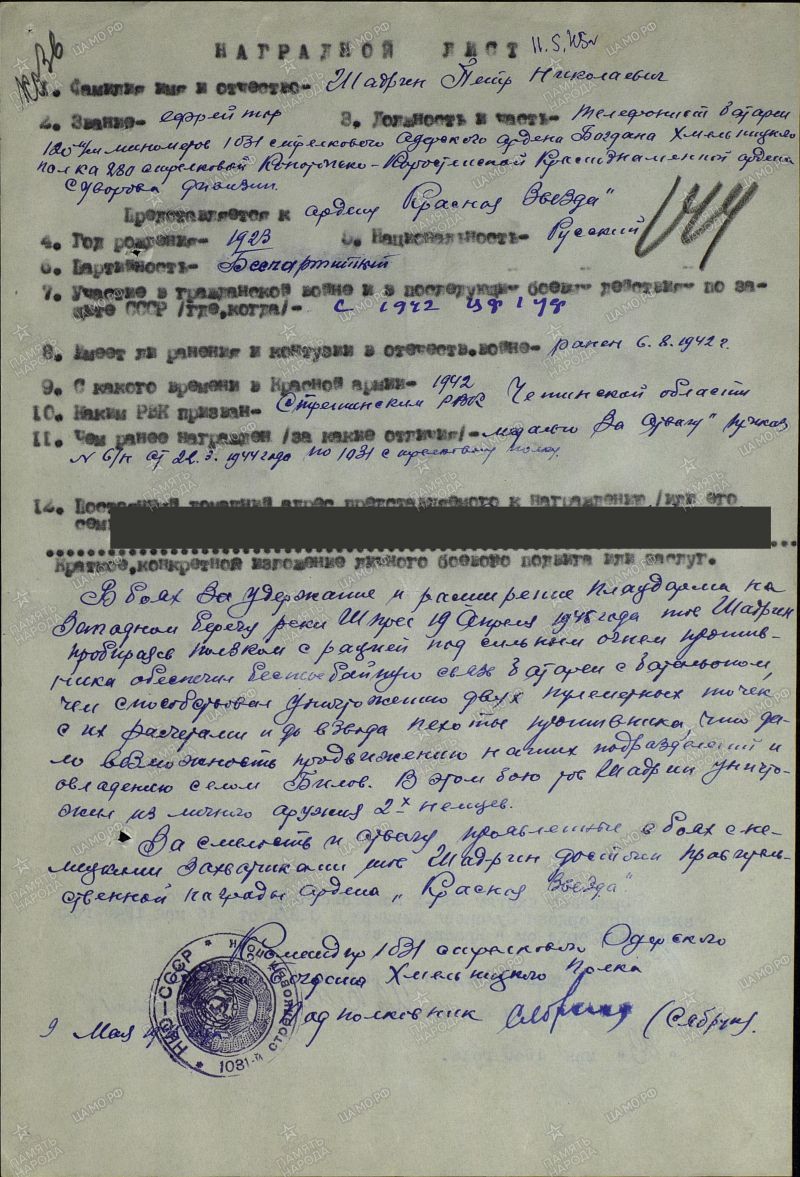 НАГРАДНОЙ ЛИСТ 11.5.45г
1. Фамилия имя и отчество- Шадрин Петр Николаевич
2. Звание- ефрейтор 3. Должность и часть- телефонист батареи
120 м/м минометов 1031 стрелкового Одерского ордена Богдана Хмельницкого
полка 280 стрелковой Конотопско-Коростенской Краснознаменной ордена
Суворова дивизии.
Представляется к ордену "Красная Звезда"
4. Год рождения- 1923 5. Национальность- Русский
144
6. Партийность- Беспартийный
7. Участие в гражданской войне и в последующи- боевы- действия- по за-
щите СССР /где,когда/- С 1942 ЦФ 1 УФ
8. Имеет ли ранения и контузии в отечеств.войне- ранен 6.8.1942 г.
9. С какого времени в Красной армии- 1942
10. Каким РВК призван- Стретинским РВК Читинской области
11. Чем ранее награжден /за какие отличия/- медалью "За Отвагу" приказ
N б/н от 22.3.1944 года по 1031 стрелковому полку.
12. Постоянный домашний адрес представляемого к награждению /или его
сем
Краткое,конкретной изложение личного боевого подвига или заслуг.
В боях за удержание и расширение плацдарма на
Западном берегу реки Шпрее 19 Апреля 1945 года тов Шадрин
пробираясь ползком с рацией под сильным огнем против-
ника обеспечил бесперебойную связь батареи с батальоном,
чем способствовал уничтожению двух пулеметных точек
с их расчетами и до взвода пехоты противника, что да-
ло возможность продвижению наших подразделений и
овладению селом Билов. В этом бою тов Шадрин уничто-
жил из личного оружия 2х немцев.
За смелость и отвагу проявленные в боях с не-
мецкими захватчиками тов Шадрин достоин правитель-
ственной награды ордена "Красная Звезда".
Командир 1031 стрелкового Одерского
Хмельницкого полка
Подполковник (Сябрук).
9 Мая
НКО-СССР
1031-й
ПАМЯТЬ НАРОДА
ЦАМО.РФ